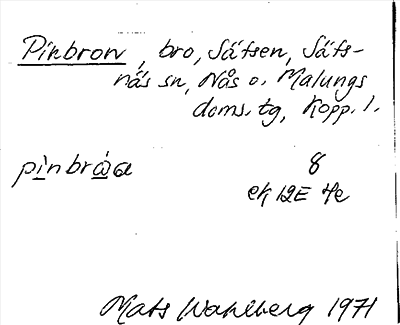 Pinbron, bro, Säfsen, Säfs-
näs sn, Nås o. Malungs
doms. tg, Kopp. l.
8
ek 12E 4e
Mats Wahlberg 1971